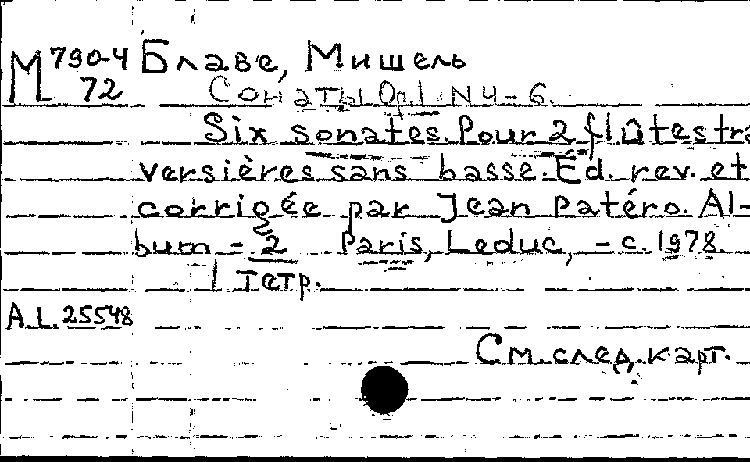 М 790-4 Блаве, Мишель
72 Сонаты Op.1 N 4-6.
Six sonates. Pour 2 flûtes tra
versières sans basse. Éd. rev. et
corrigée par Jean Patéro. Al-
bum - 2 Paris, Leduc, - c. 1978.
1 тетр.
A.L. 25548
См. след. карт.